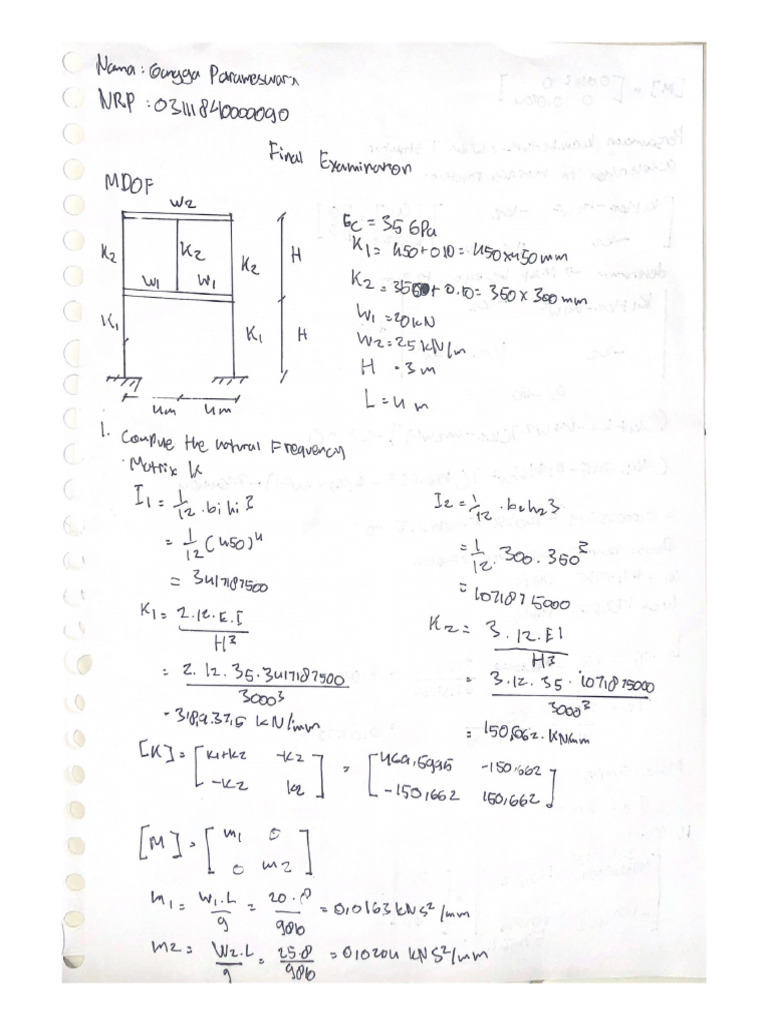 Nama : Gangga Parameswara
NRP : 03111840000090
Final Examination
MDOF
W2
K2 K2 K2 H
W1 W1
K1 K1 H
4m 4m
Ec = 35 GPa
K1 = 450+010 = 450x450 mm
K2 = 350+0.10 = 350 x 300 mm
W1 = 20 kN
W2 = 25 kN/m
H = 3 m
L = 4 m
1. Compute the natural Frequency
Matrix K
I1 = 1/12 . b1 h1 3
= 1/12 (450)^4
= 3417187500
K1 = 2.12.E.I / H^3
= 2. 12. 35. 3417187500 / 3000^3
= 318,9375 kN/mm
I2 = 1/12 . b2h2 3
= 1/12 . 300. 350^3
= 1071875000
K2 = 3.12.EI / H^3
= 3.12. 35. 1071875000 / 3000^3
= 150,062. KN/mm
[K] = [K1+K2 -K2; -K2 K2] = [469,5995 -150,662; -150,662 150,662]
[M] = [m1 0; 0 m2]
m1 = W1.L / g = 20.8 / 9810 = 0,0163 kNS²/mm
m2 = W2.L / g = 25.8 / 9810 = 0,0204 KNS²/mm